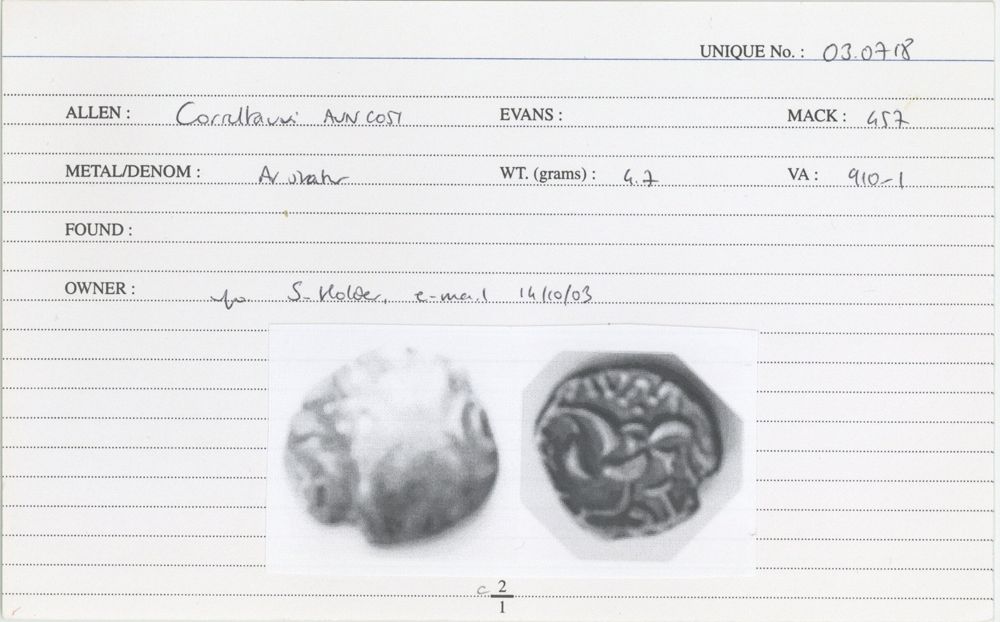 UNIQUE No. : 03.0718
ALLEN : Corieltauvi AVN COST EVANS : MACK : 457
METAL/DENOM : AV stater WT. (grams) : 4.7 VA : 910-1
FOUND :
OWNER : S. Holder, e-mail 14/10/03
c 2
1